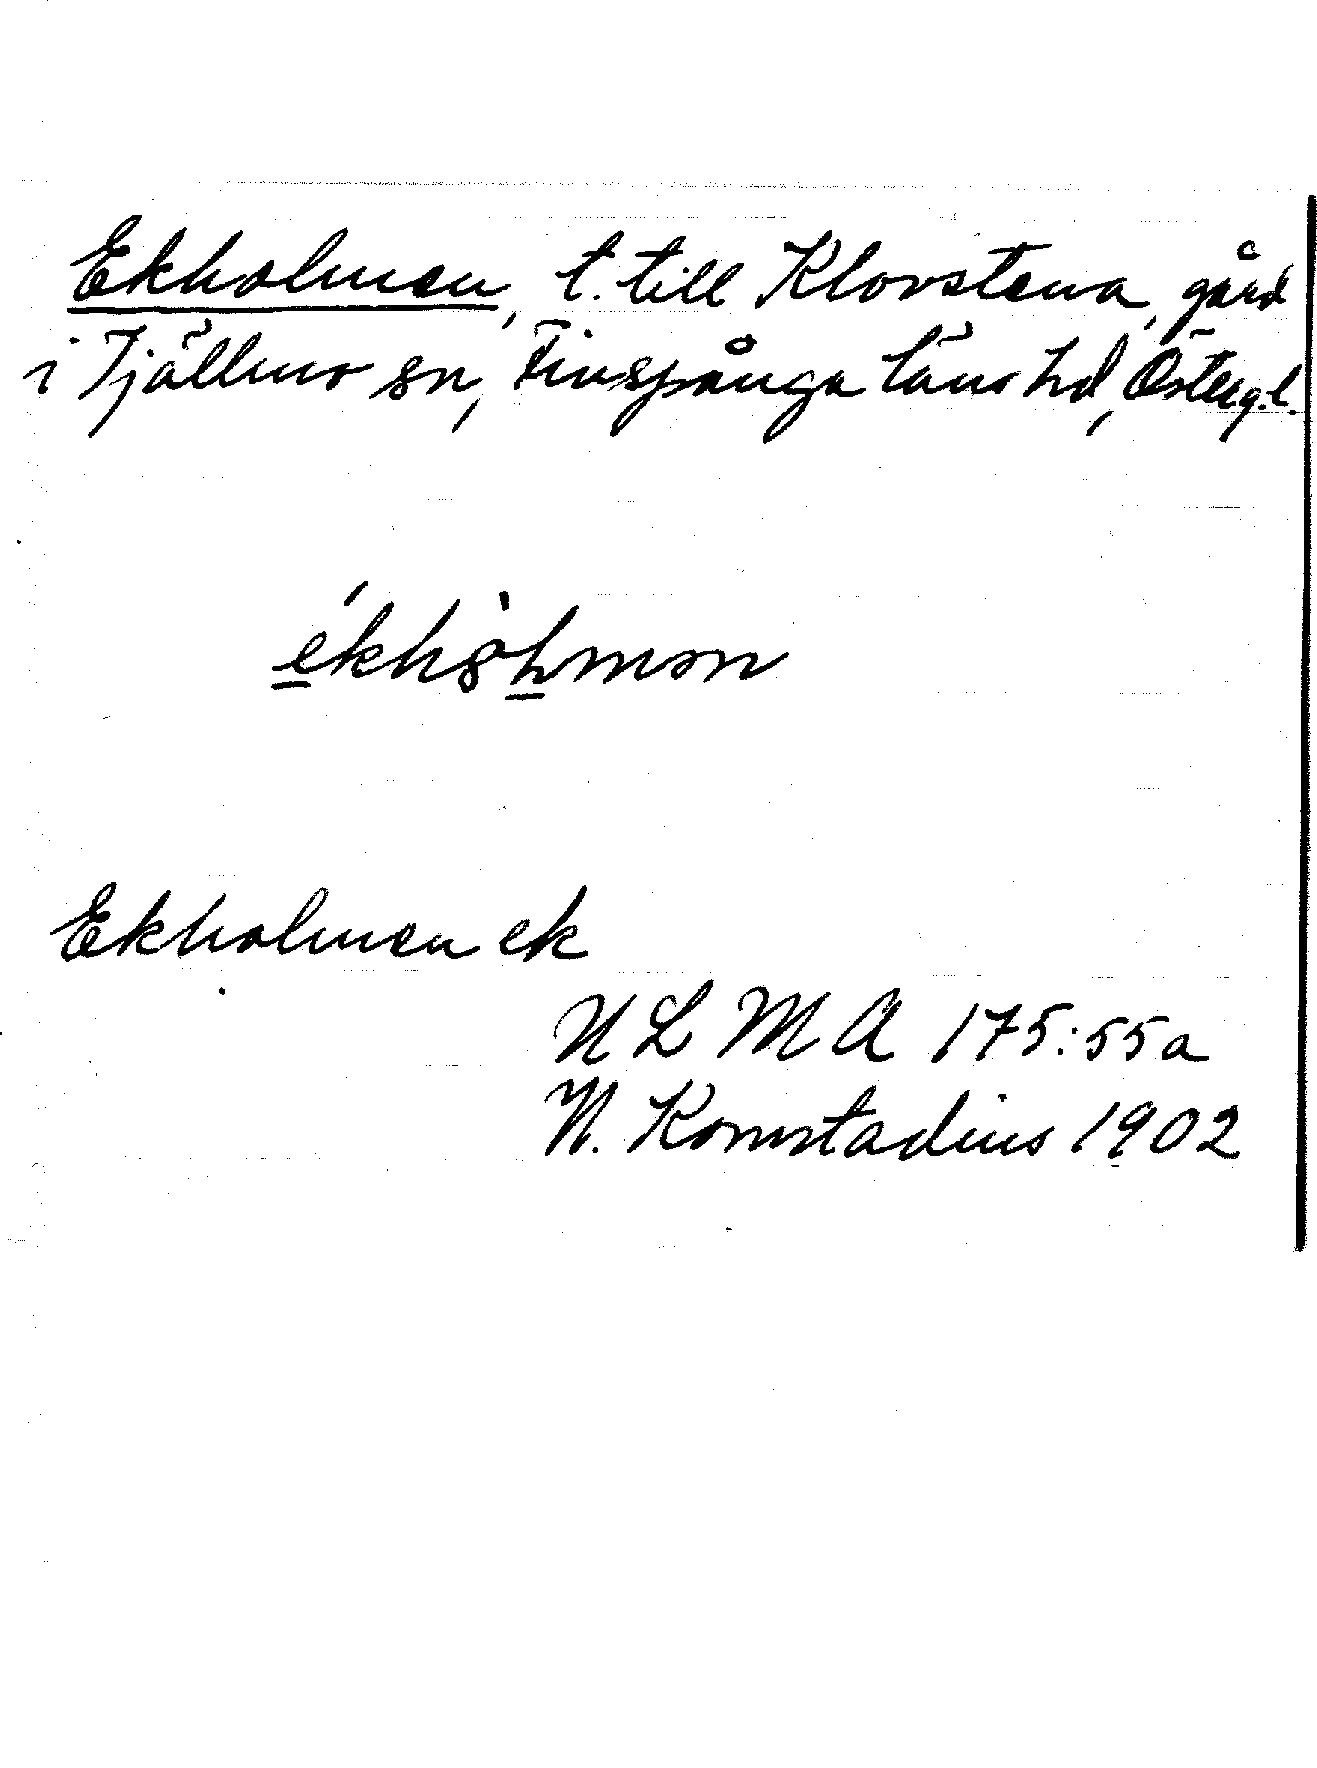 Ekholmen, t. till Klovstena, gård
i Tjällmo sn, Finspånga läns hd, Östergl.
Ekholmen ek
U L M A 175:55a
N. Komstadius 1902